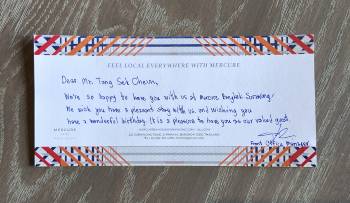 FEEL LOCAL EVERYWHERE WITH MERCURE
Dear Mr. Tang Sek Cheim,
We're so happy to have you with us at Mercure Bangkok Surawong.
We wish you have a pleasant stay with us and wishing you
have a wonderful birthday. It is a pleasure to have you as our valued guest.
MERCURE
Front Office Manager